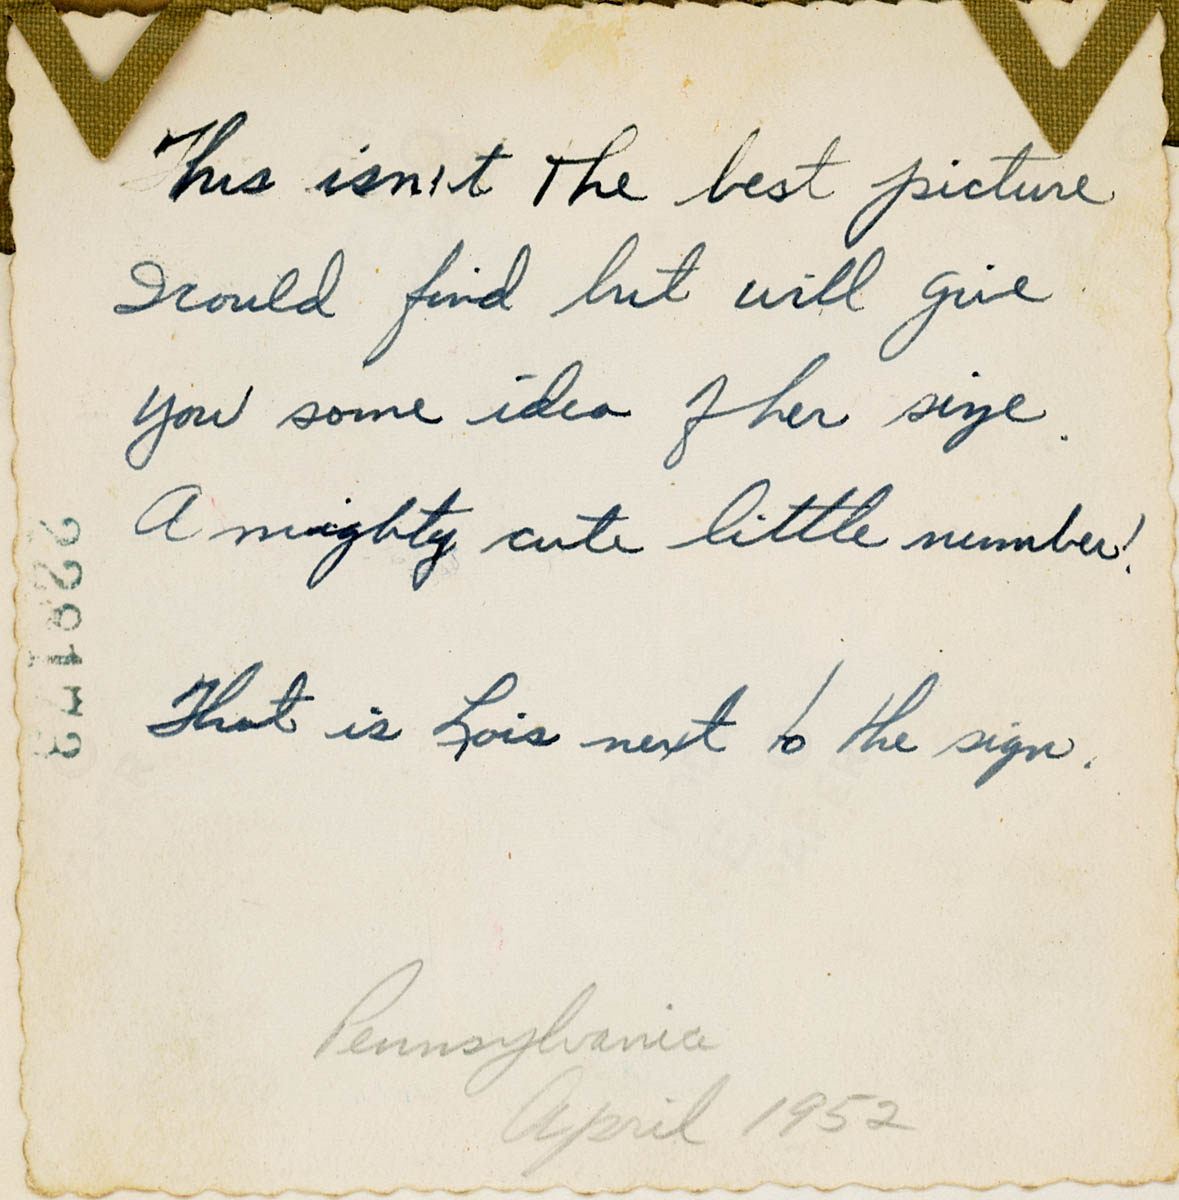 This isn't the best picture
I could find but will give
you some idea of her size.
A mighty cute little number!
That is Lois next to the sign.
Pennsylvania
April 1952